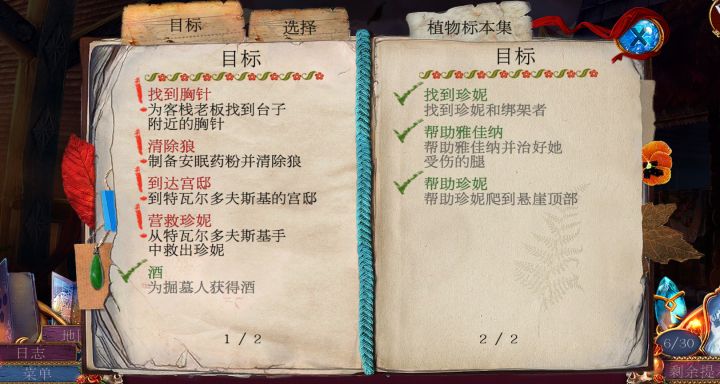 目标
选择
植物标本集
目标
找到胸针
为客栈老板找到台子
附近的胸针
清除狼
制备安眠药粉并清除狼
到达宫邸
到特瓦尔多夫斯基的宫邸
营救珍妮
从特瓦尔多夫斯基手
中救出珍妮
酒
为掘墓人获得酒
1 / 2
目标
找到珍妮
找到珍妮和绑架者
帮助雅佳纳
帮助雅佳纳并治好她
受伤的腿
帮助珍妮
帮助珍妮爬到悬崖顶部
2 / 2
地
日志
菜单
6/30
剩余提